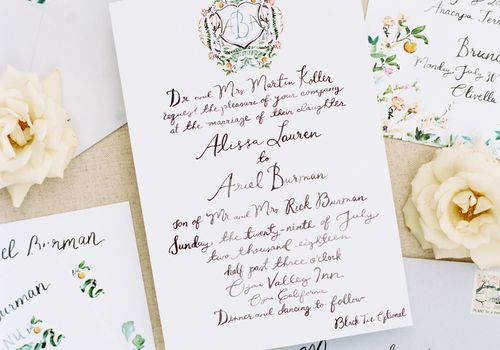 ABA
Dr. and Mrs Martin Koller
request the pleasure of your company
at the marriage of their daughter
Alissa Lauren
to
Ariel Burman
son of Mr and Mrs Rick Burman
Sunday the twenty-ninth of July
two thousand eighteen
half past three o'clock
Ojai Valley Inn
Ojai California
Dinner and dancing to follow
Black Tie Optional
Anacapa Terrace
Brun
Monday July 30
Olivella
el Burman
Burman